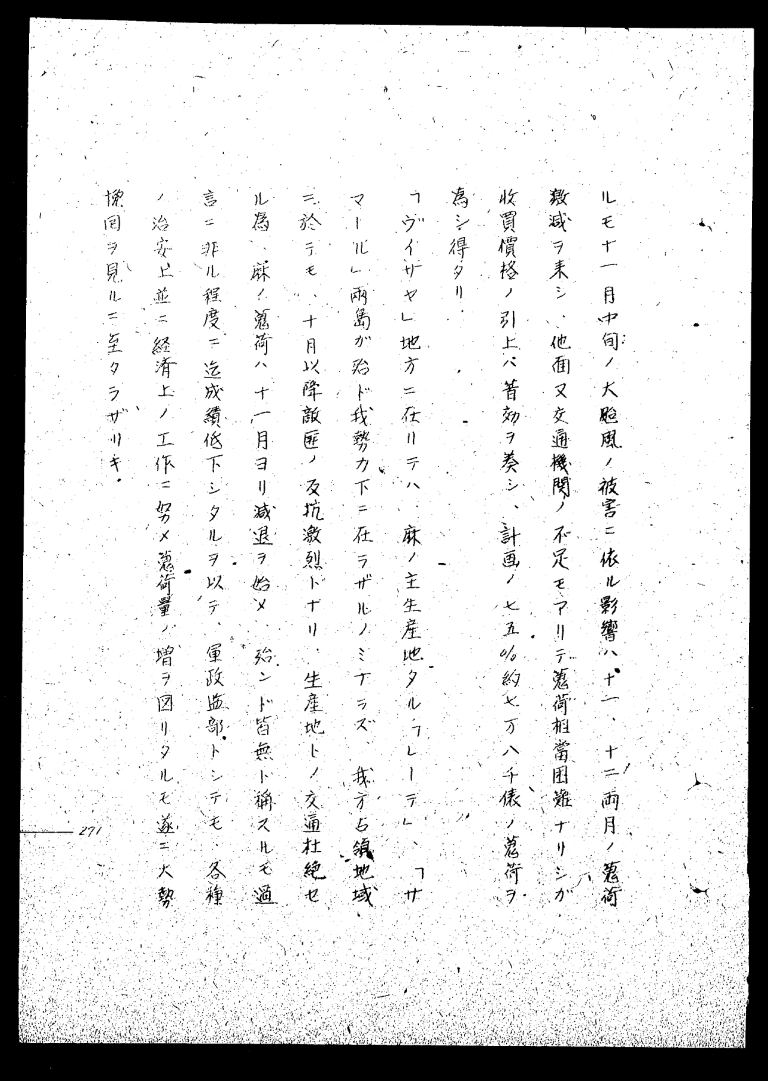 ルモ十一月中旬ノ大颱風ノ被害ニ依ル影響ハ、十一、十二両月ノ蒐荷
激減ヲ来シ、他面又交通機関ノ不足モアリテ蒐荷相當困難ナリシガ、
收買價格ノ引上ハ著効ヲ奏シ、計画ノ七五%約七万八千俵ノ蒐荷ヲ
為シ得タリ
「ヴイサヤ」地方ニ在リテハ、麻ノ主生産地タル「レーテ」、「サ
マール」両島ガ殆ド我勢力下ニ在ラザルノミナラズ、我方占領地域
ニ於テモ、十月以降敵匪ノ反抗激烈トナリ、生産地トノ交通杜絶セ
ル為、麻ノ蒐荷ハ十一月ヨリ減退ヲ始メ、殆ンド皆無ト稱スルモ過
言ニ非ル程度ニ迄成績低下シタルヲ以テ、軍政監部トシテモ、各種
ノ治安上並ニ経済上ノ工作ニ努メ蒐荷量ノ増ヲ図リタルモ遂ニ大勢
挽回ヲ見ルニ至タラザリキ。
271